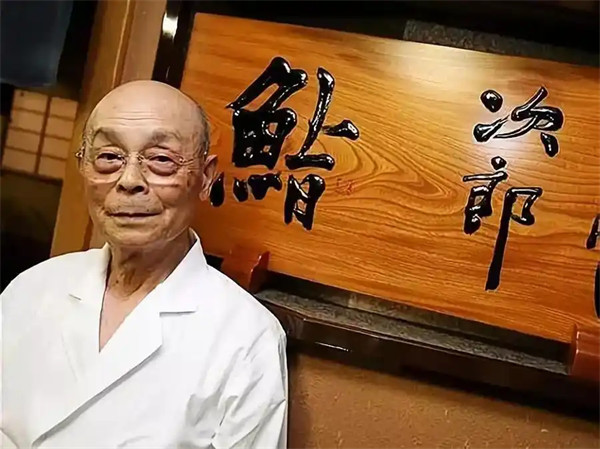 鮨
次郎